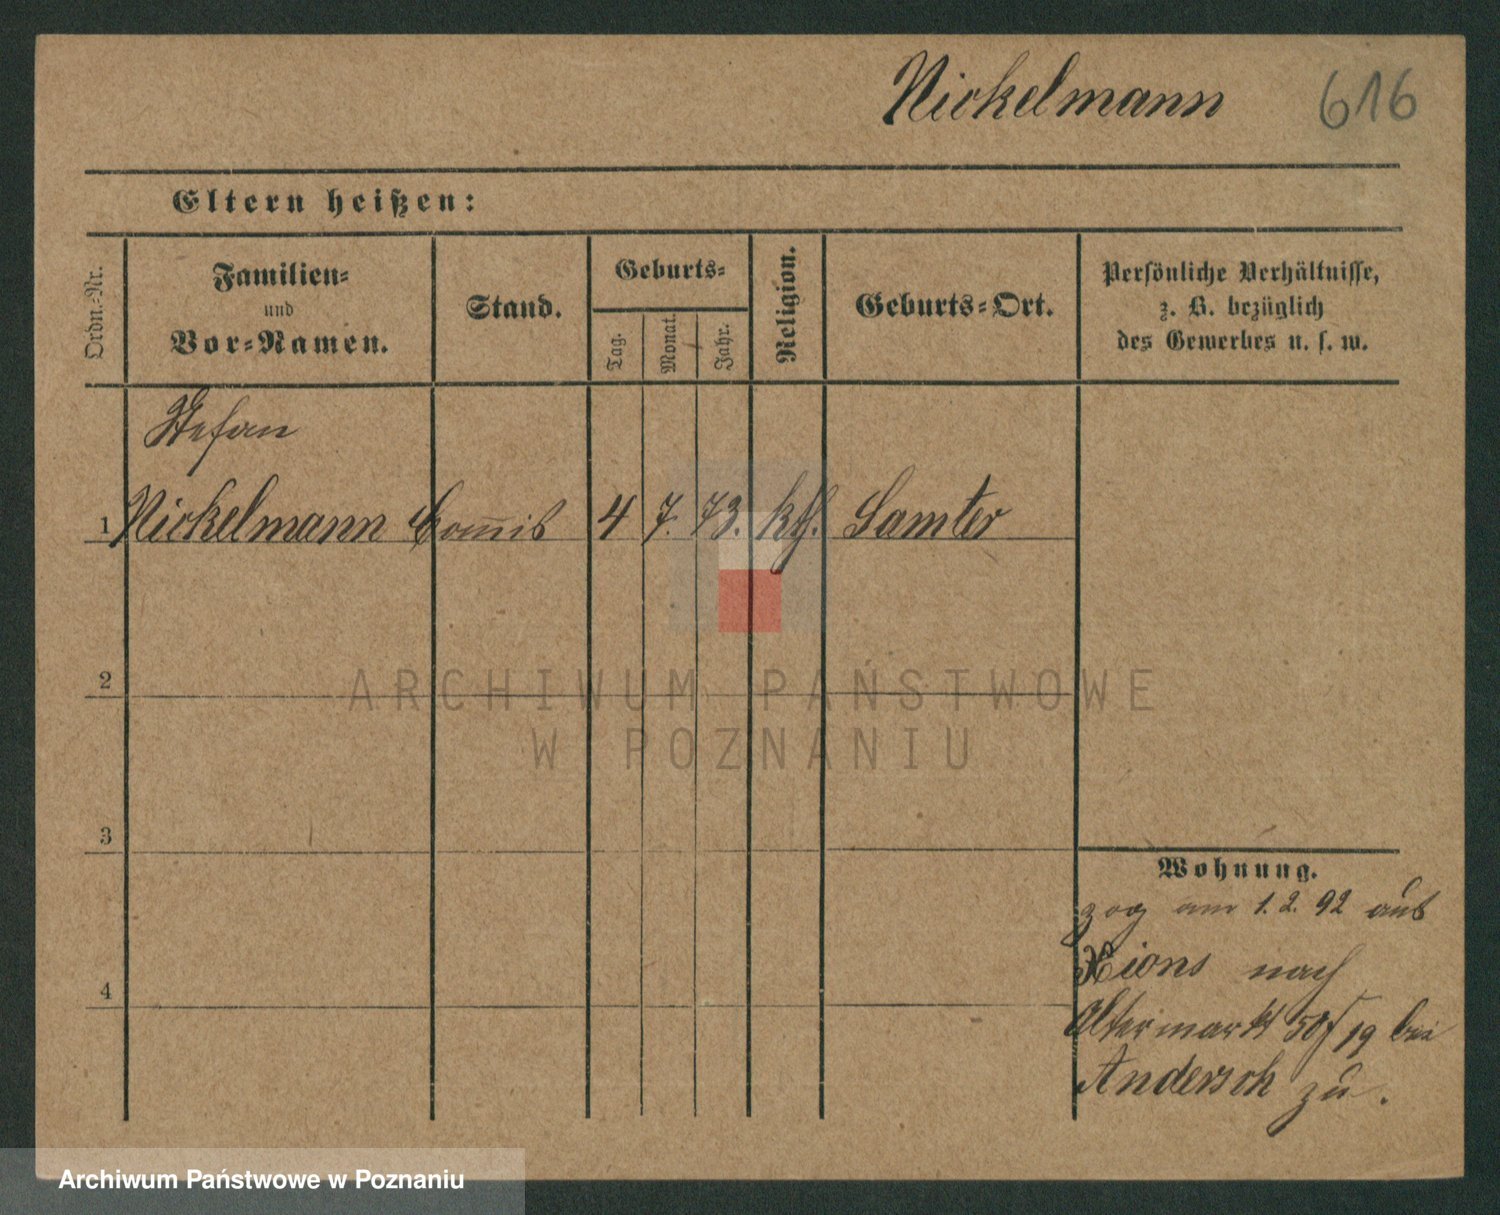 Nickelmann 616
Eltern heißen:
Ordn.-Nr.
Familien-
und
Vor-Namen.
Stand.
Geburts-
Tag.
Monat.
Jahr.
Religion.
Geburts-Ort.
Persönliche Verhältnisse,
z. B. bezüglich
des Gewerbes u. s. w.
Stefan
1 Nickelmann Com̅is 4 7. 73. kth. Samter
2
3
4
Wohnung.
zog am 1. 2. 92 aus
Xions nach
Altermarkt 50/19 bei
Andersch zu.
ARCHIWUM PAŃSTWOWE
W POZNANIU
Archiwum Państwowe w Poznaniu